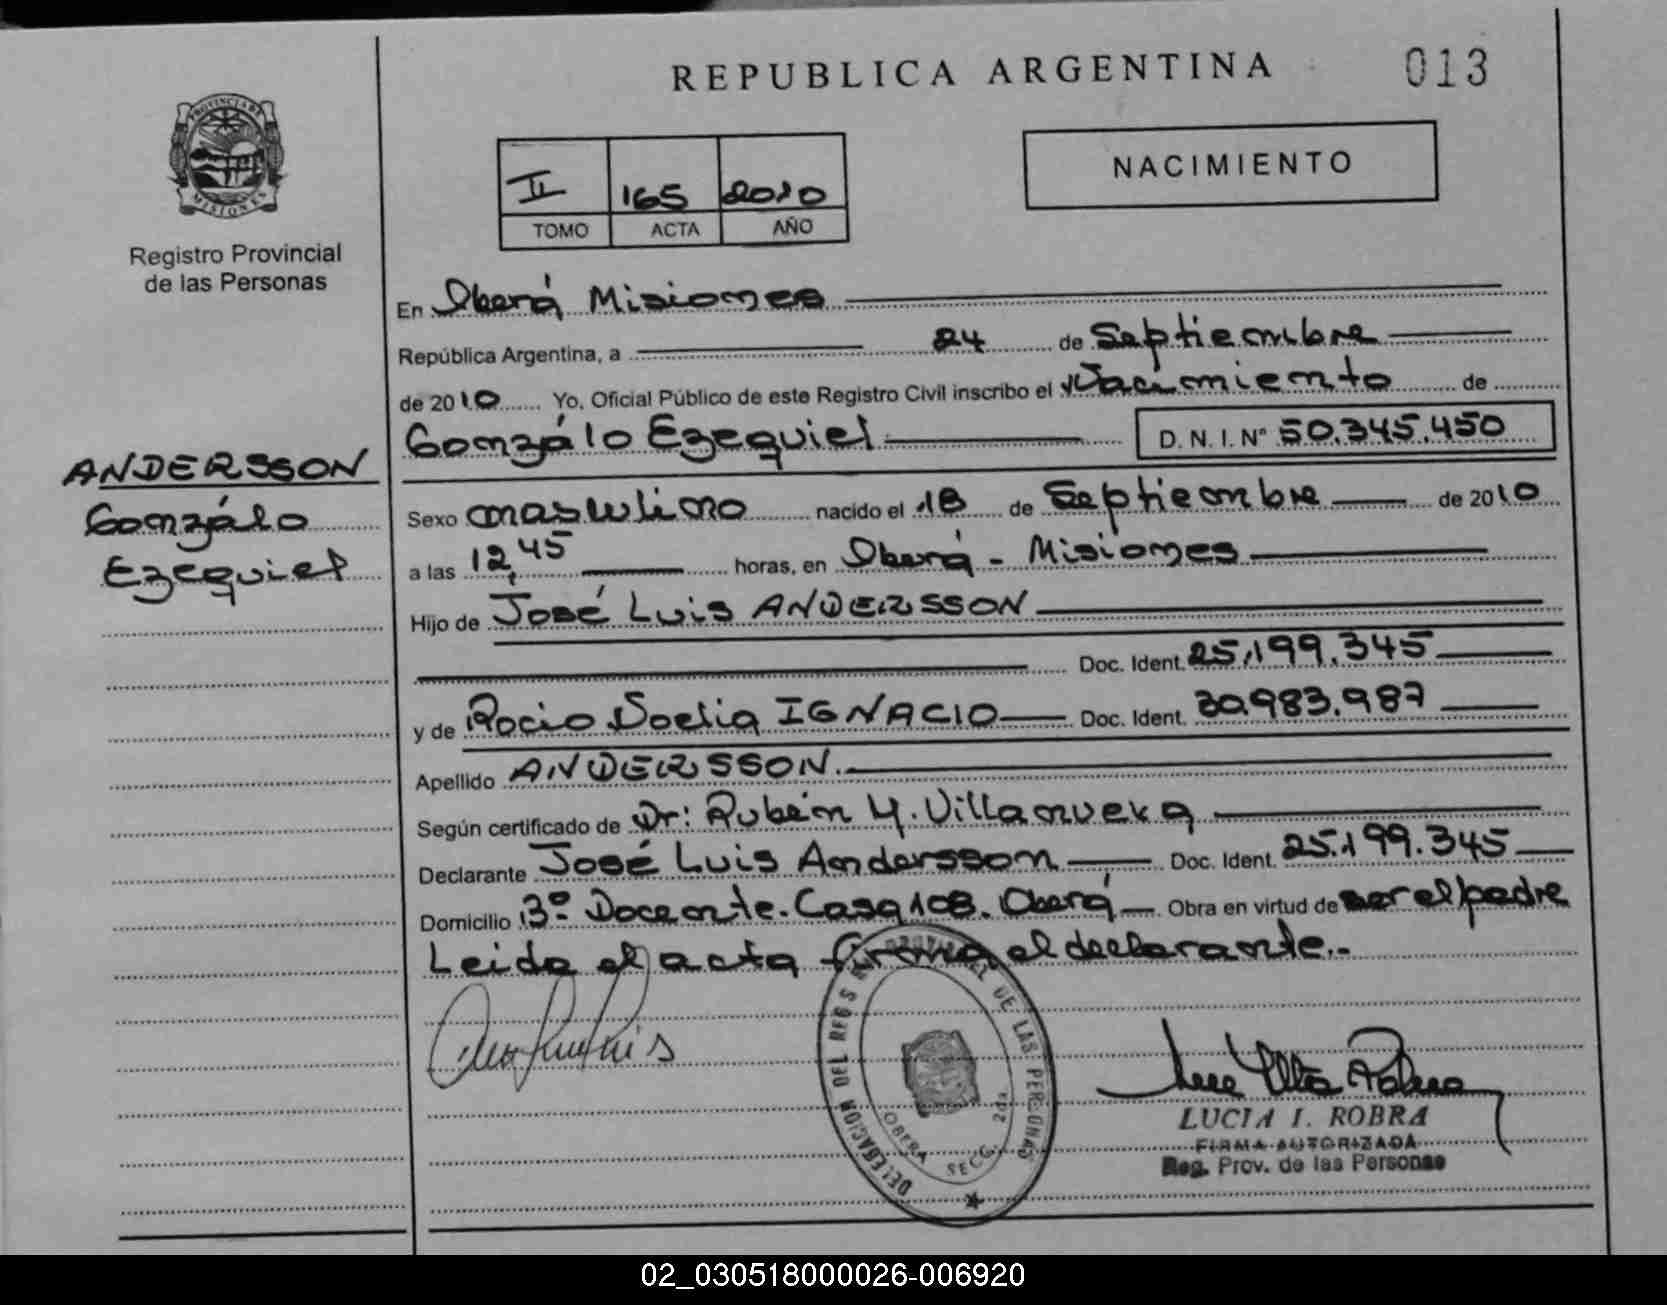 REPUBLICA ARGENTINA
013
PROVINCIA DE MISIONES
Registro Provincial
de las Personas
II 165 2010
TOMO ACTA AÑO
NACIMIENTO
En Oberá Misiones
República Argentina, a 24 de Septiembre
de 2010 Yo, Oficial Público de este Registro Civil inscribo el Nacimiento de
Gonzálo Ezequiel D. N. I. N° 50.345.450
ANDERSSON
Gonzálo
Ezequiel
Sexo masculino nacido el 18 de Septiembre de 2010
a las 12,45 horas, en Oberá - Misiones
Hijo de José Luis ANDERSSON
Doc. Ident. 25.199.345
y de Rocio Noelia IGNACIO Doc. Ident. 30.983.987
Apellido ANDERSSON.
Según certificado de Dr: Rubén Y. Villanueva
Declarante José Luis Andersson Doc. Ident. 25.199.345
Domicilio 3º Docente. Casa 108. Oberá Obra en virtud de ser el padre
Leida el acta firma el declarante.-
DELEGACION DEL REGS PROVINCIAL DE LAS PERSONAS
OBERA SECC. 2da.
LUCIA I. ROBRA
FIRMA AUTORIZADA
Reg. Prov. de las Personas
02_030518000026-006920